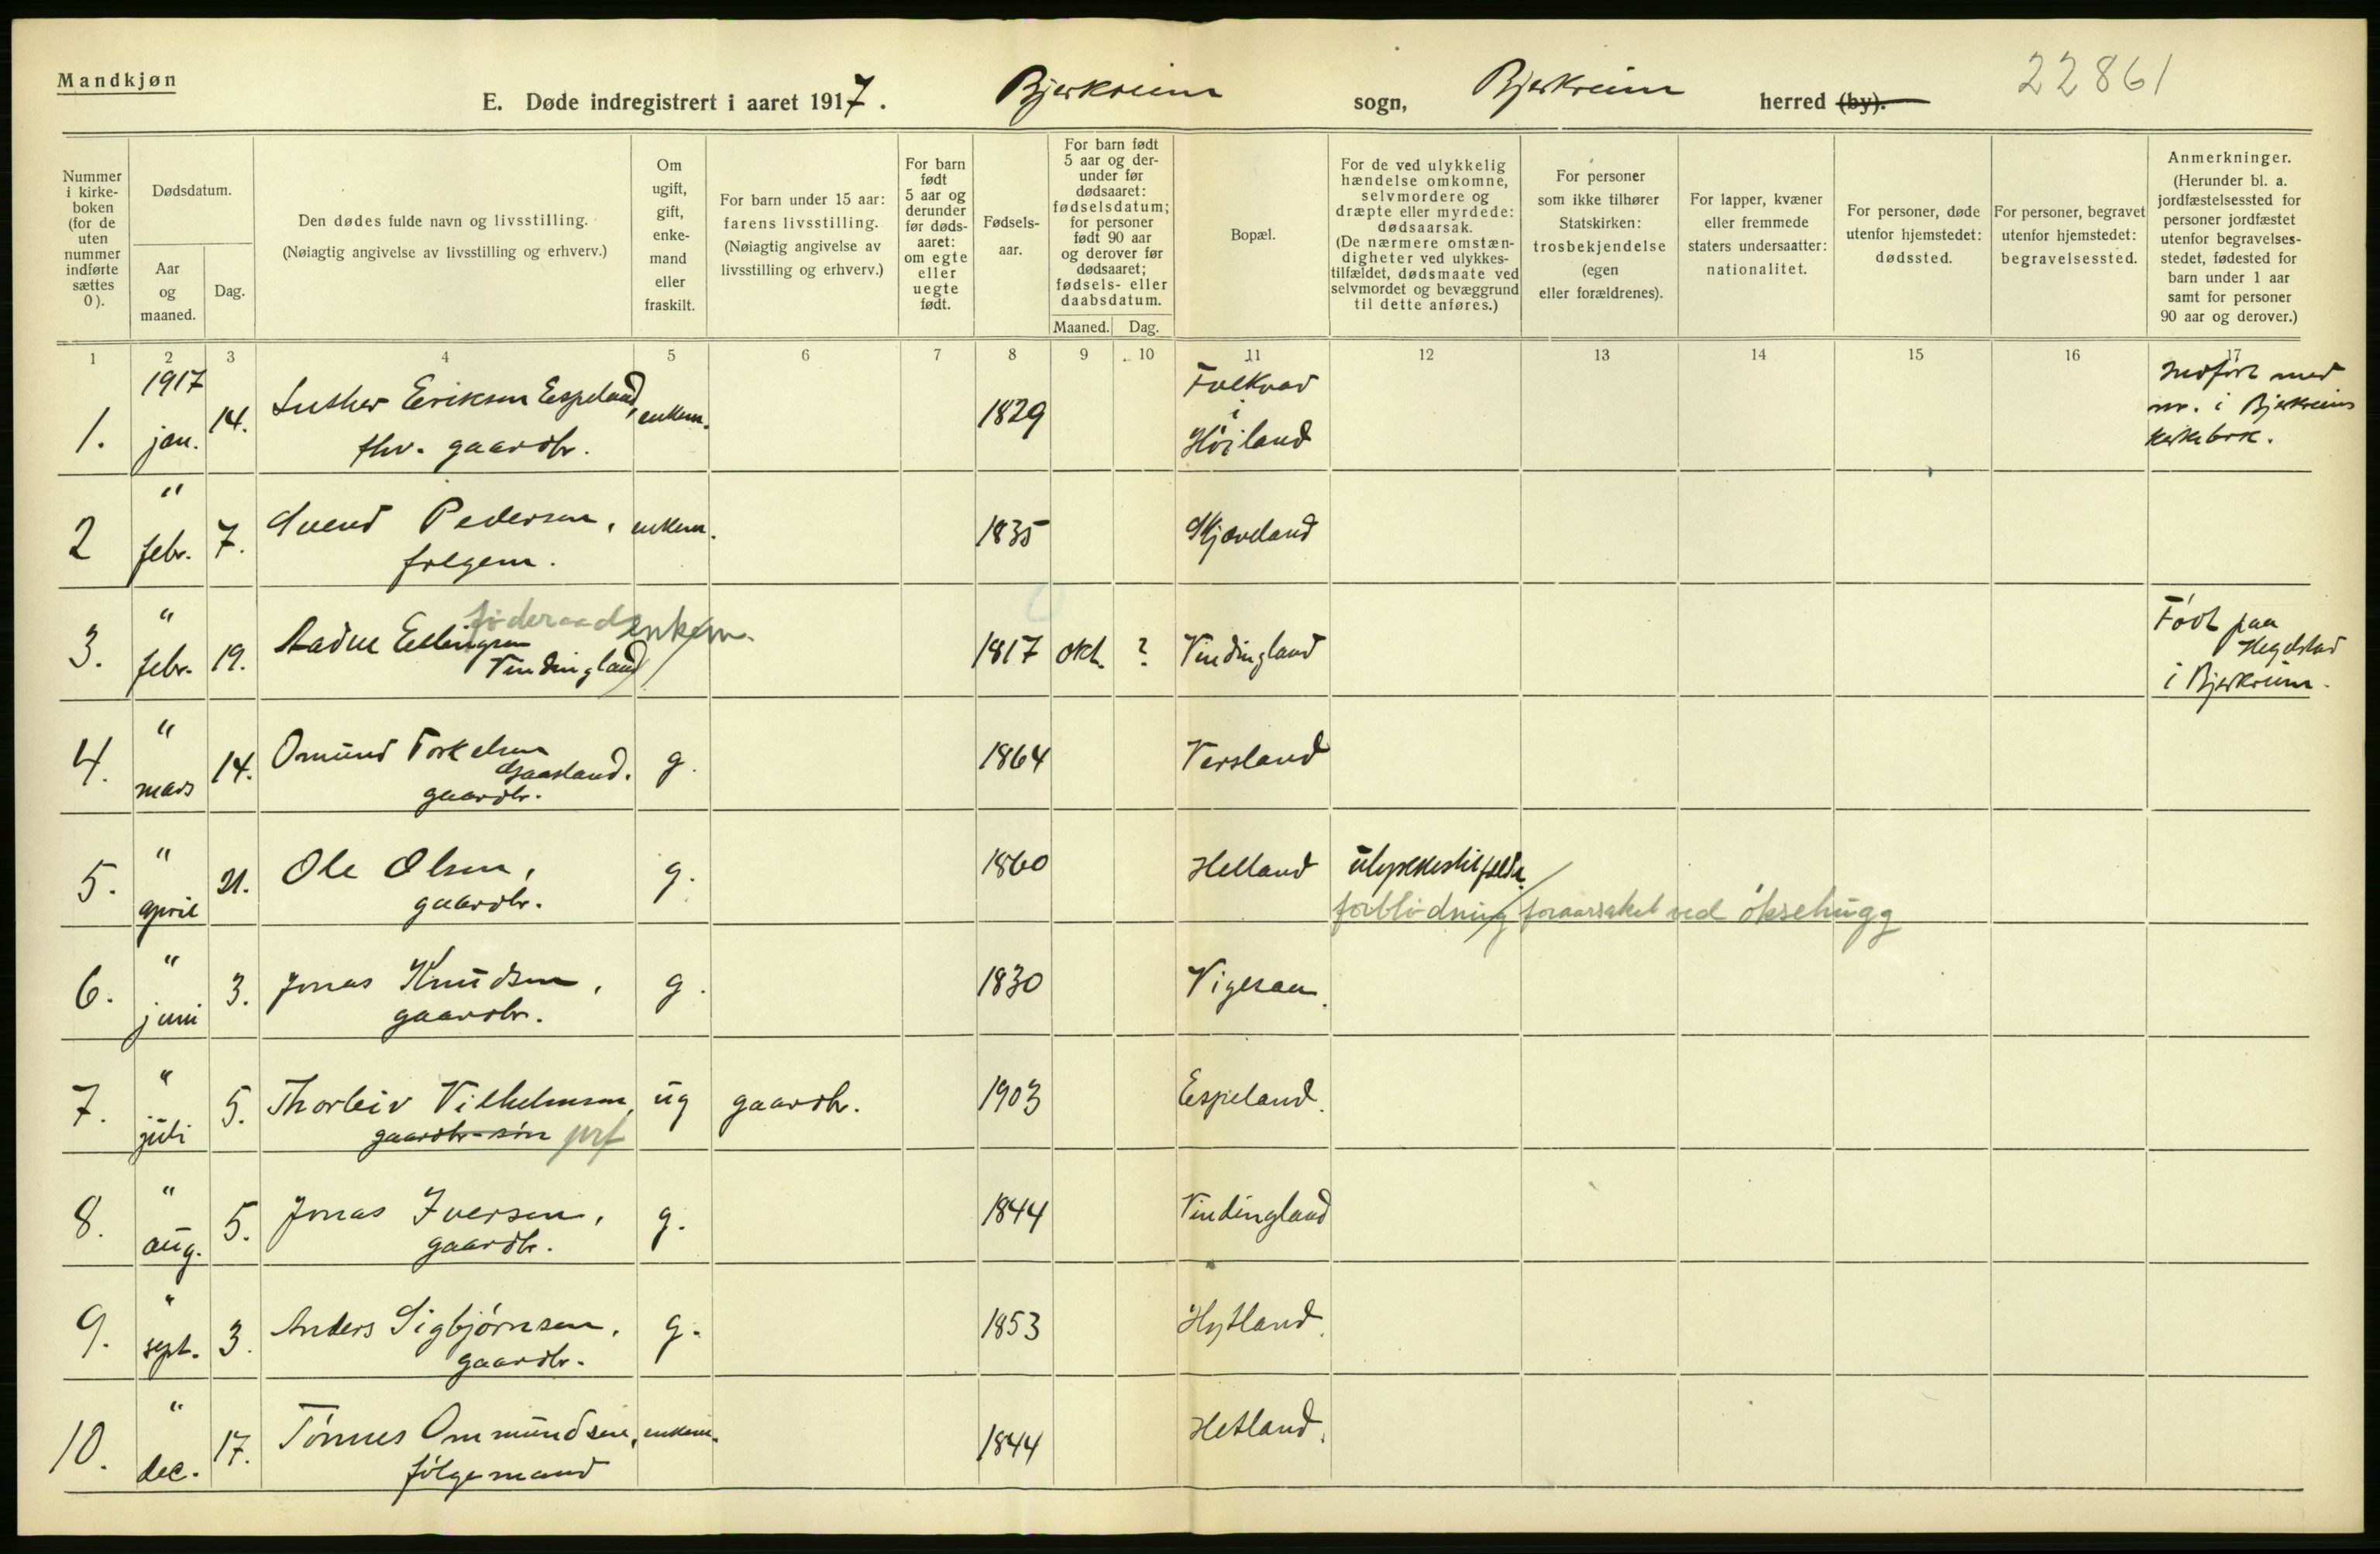 Mandkjøn
E. Døde indregistrert i aaret 1917. Bjerkreim sogn, Bjerkreim herred (by).
22861
Nummer i kirke-boken (for de uten nummer indførte sættes 0).
Dødsdatum.
Aar og maaned.
Dag.
Den dødes fulde navn og livsstilling.
(Nøiagtig angivelse av livsstilling og erhverv.)
Om ugift, gift, enke-mand eller fraskilt.
For barn under 15 aar: farens livsstilling.
(Nøiagtig angivelse av livsstilling og erhverv.)
For barn født 5 aar og derunder før døds-aaret: om egte eller uegte født.
Fødsels-aar.
For barn født 5 aar og der-under før dødsaaret: fødselsdatum; for personer født 90 aar og derover før dødsaaret; fødsels- eller daabsdatum.
Maaned. Dag.
Bopæl.
For de ved ulykkelig hændelse omkomne, selvmordere og dræpte eller myrdede: dødsaarsak.
(De nærmere omstæn-digheter ved ulykkes-tilfældet, dødsmaate ved selvmordet og bevæggrund til dette anføres.)
For personer som ikke tilhører Statskirken: trosbekjendelse (egen eller forældrenes).
For lapper, kvæner eller fremmede staters undersaatter: nationalitet.
For personer, døde utenfor hjemstedet: dødssted.
For personer, begravet utenfor hjemstedet: begravelsessted.
Anmerkninger.
(Herunder bl. a. jordfæstelsessted for personer jordfæstet utenfor begravelses-stedet, fødested for barn under 1 aar samt for personer 90 aar og derover.)
1 2 3 4 5 6 7 8 9 10 11 12 13 14 15 16 17
1917
1. jan. 14. Luther Eriksen Espeland, enkem. 1829 Folkvord i Høiland Indført med nr. i Bjerkreims kirkebok.
fhv. gaardbr.
"
2 febr. 7. Svend Pedersen, enkem. 1835 Skjæveland
folgem.
"
føderaad enkem.
3. febr. 19. Aadne Ellingsen 1817 okt. ? Vindingland Født paa Hegelstad i Bjerkreim.
Vindingland
"
4. mars 14. Omund Torkelsen g. 1864 Versland
Gaasland.
gaardbr.
"
5. april 21. Ole Olsen, g. 1860 Helland ulykkestilfælde.
gaardbr.
forblødning foraarsaket ved øksehugg
"
6. juni 3. Jonas Knudsen, g. 1830 Vigesaa.
gaardbr.
"
7. juli 5. Thorleiv Vilhelmsen, ug gaardbr. 1903 Espeland.
gaardbr-søn prf
"
8. aug. 5. Jonas Iversen, g. 1844 Vindingland
gaardbr.
"
9. sept. 3. Anders Sigbjørnsen, g. 1853 Hytland.
gaardbr.
"
10. dec. 17. Tønnes Ommundsen, enkem. 1844 Hetland.
følgemand